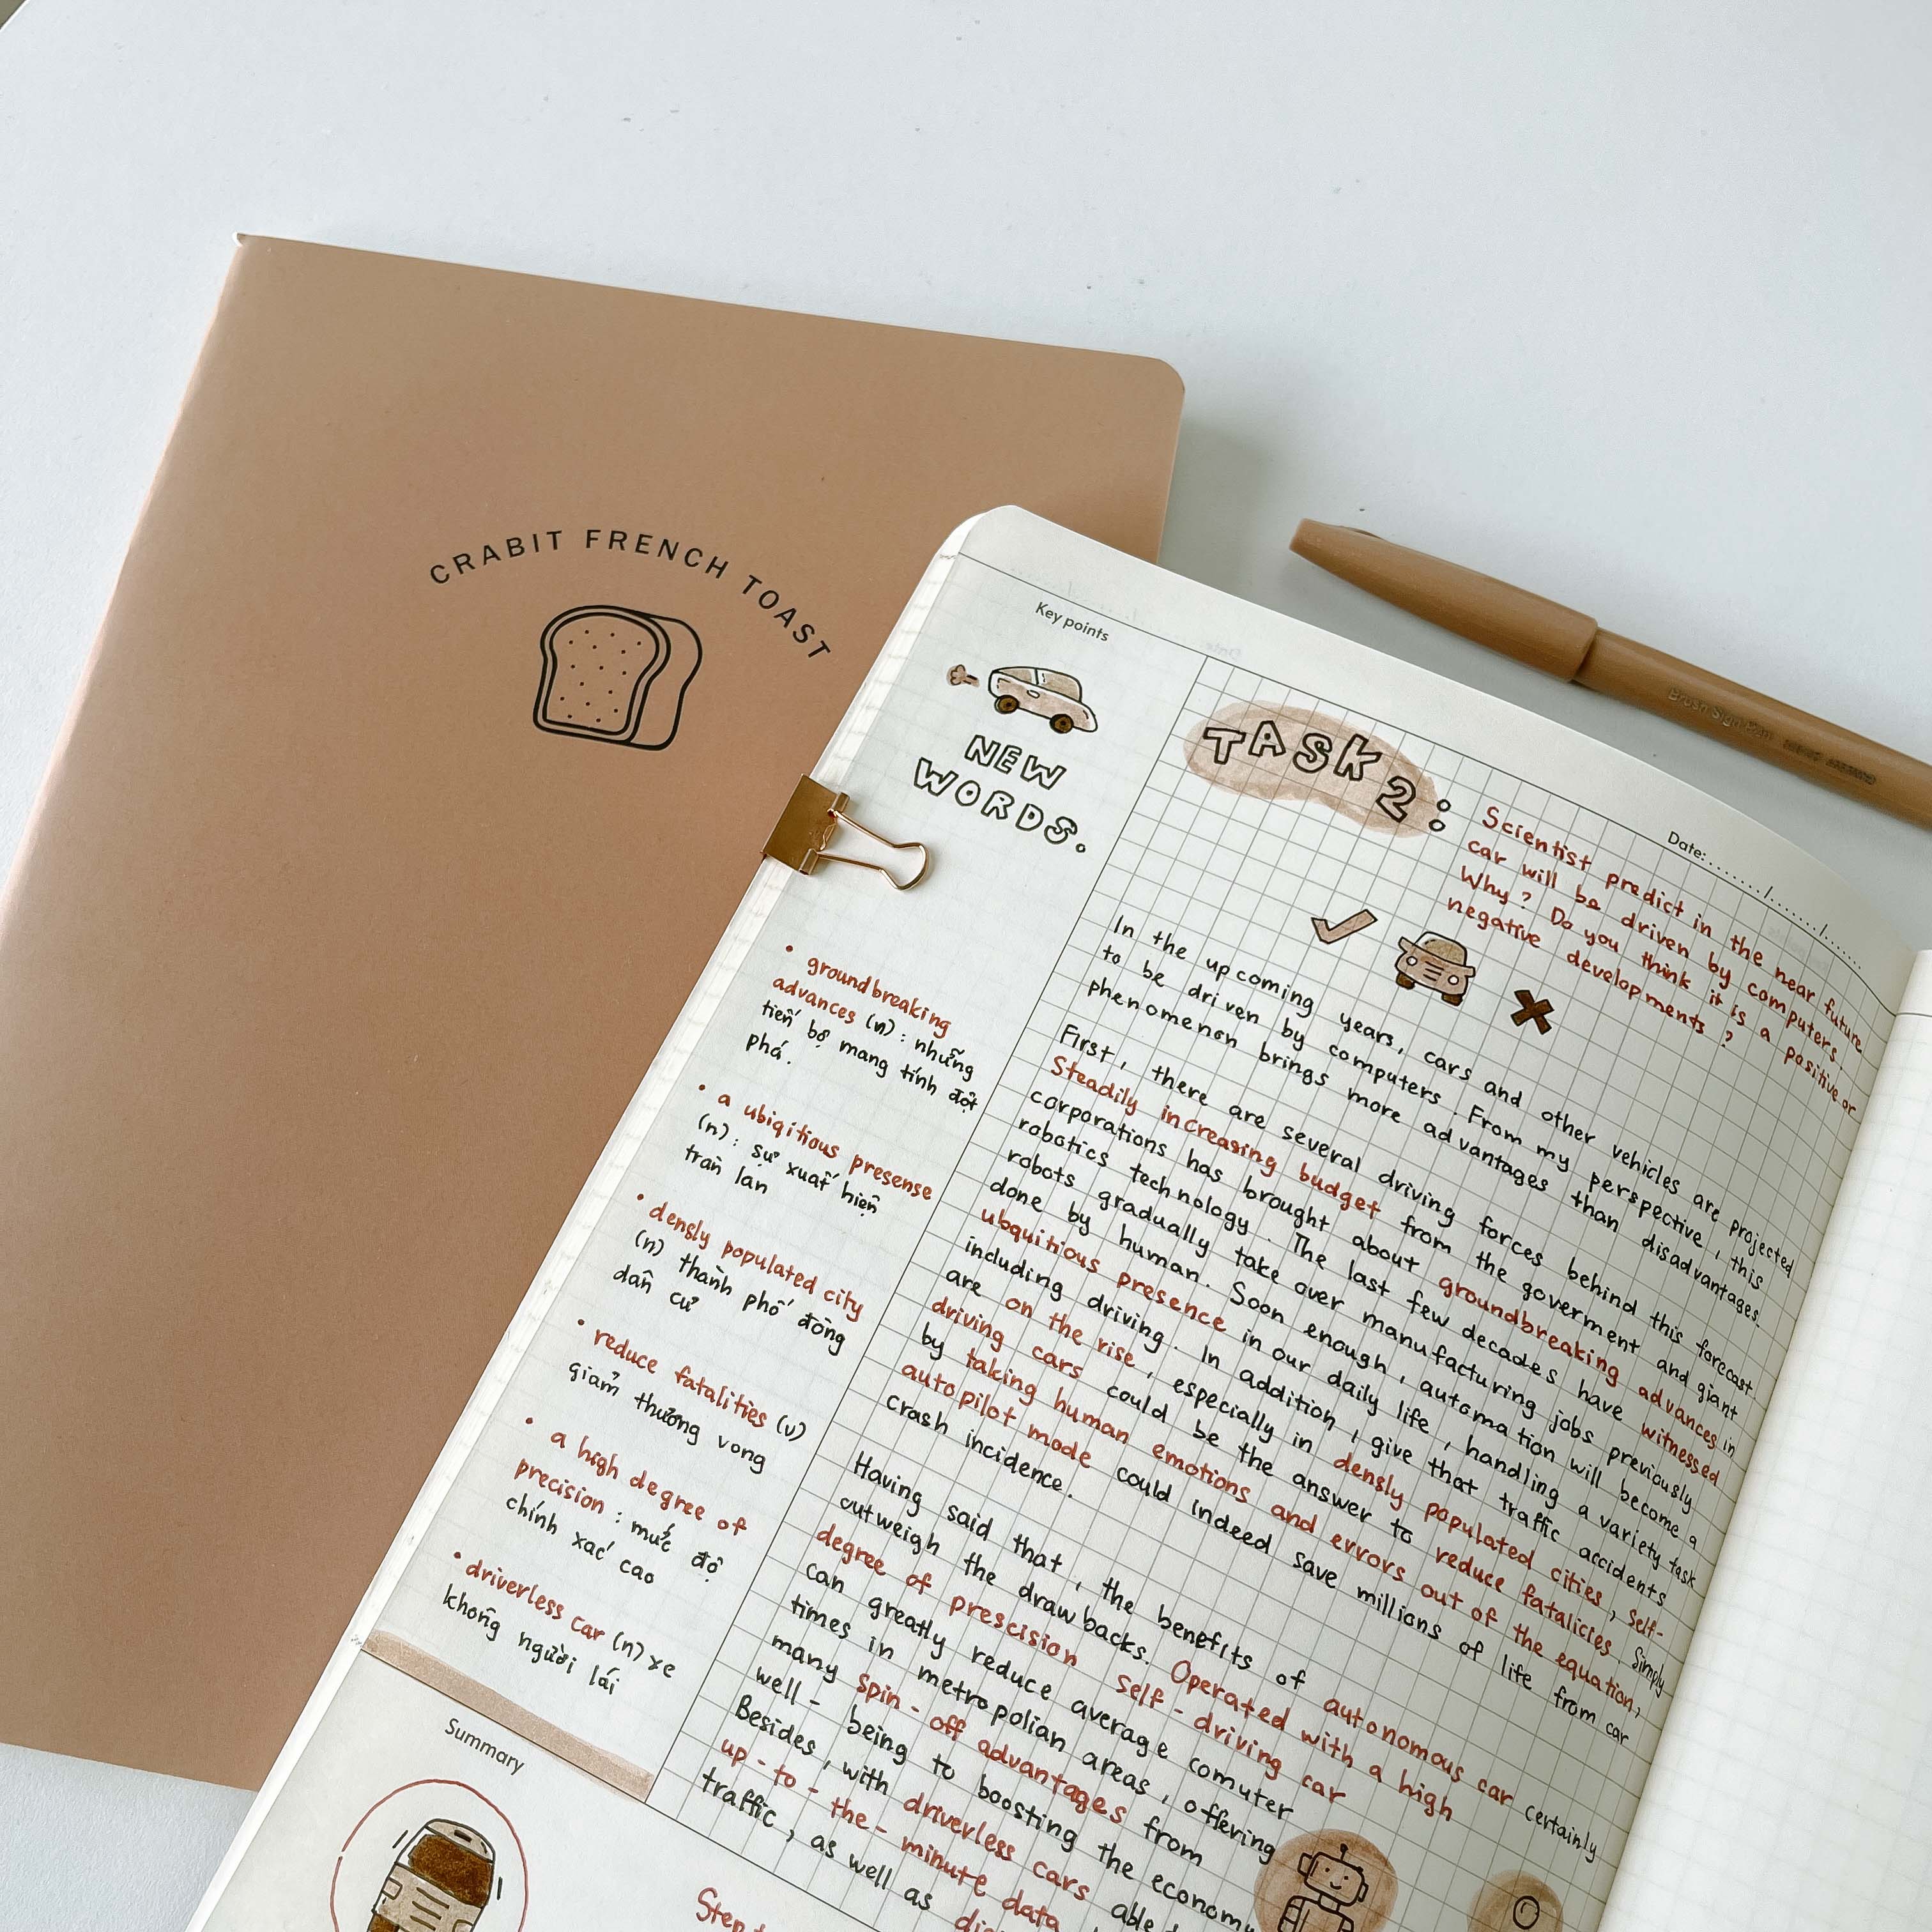 CRABIT FRENCH TOAST
Brush Sign Pen
Key points
NEW
WORDS.
• groundbreaking
advances (n): những
tiến bộ mang tính đột
phá.
• a ubiqitious presense
(n): sự xuất hiện
tràn lan
• densly populated city
(n) thành phố đông
dân cư
• reduce fatalities (v)
giảm thương vong
• a high degree of
precision : mức độ
chính xác cao
• driverless car (n) xe
không người lái
Summary
Date:......../......../........
TASK 2:
Scientist predict in the near future
car will be driven by computers.
Why? Do you think it is a positive or
negative developments?
In the upcoming years, cars and other vehicles are projected
to be driven by computers. From my perspective, this
phenomenon brings more advantages than disadvantages.
First, there are several driving forces behind this forecast
Steadily increasing budget from the goverment and giant
corporations has brought about groundbreaking advances in
robotics technology. The last few decades have witnessed
robots gradually take over manufacturing jobs previously
done by human. Soon enough, automation will become a
ubquitious presence in our daily life, handling a variety task
including driving. In addition, give that traffic accidents
are on the rise, especially in densly populated cities, self-
driving cars could be the answer to reduce fatalicies. Simply
by taking human emotions and errors out of the equation,
autopilot mode could indeed save millions of life from car
crash incidence.
Having said that, the benefits of autonomous car certainly
outweigh the drawbacks. Operated with a high
degree of prescision self-driving car
can greatly reduce average comuter
times in metropolian areas, offering
many spin-off advantages from
well-being to boosting the economy
Besides, with driverless cars able
up-to-the-minute data
traffic, as well as